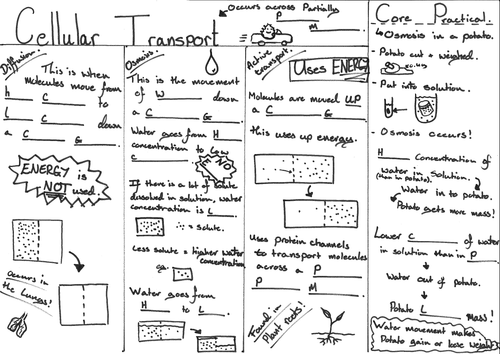 Cellular Transport
Occurs across Partially
P____ M____
Diffusion.
This is when
Molecules move from
h____ C____ to
L____ C____ down
a C____ G____
ENERGY is
NOT used.
Occurs in
the Lungs!
Osmosis.
This is the movement
of W____ down
a C____ G____
Water goes from H____
concentration to low
c____
If there is a lot of solute
dissolved in solution, water
concentration is L____
= solute.
Less solute = higher water
concentration
eg
Water goes from
H____ to L____
Active
transport.
Uses ENERGY
Molecules are moved UP
a C____ G____
this uses up energy.
Uses protein channels
to transport molecules
across a P____
P____ M____
Found in
Plant roots!
Core Practical.
Osmosis in a potato.
- Potato cut + weighed.
- Put into solution.
- Osmosis occurs!
H____ Concentration of
water in Solution.
(than in potato).
Water in to potato.
Potato gets more mass!
Lower C____ of water
in solution than in P____
Water out of potato.
Potato L____ mass!
Water movement makes
Potato gain or lose weight